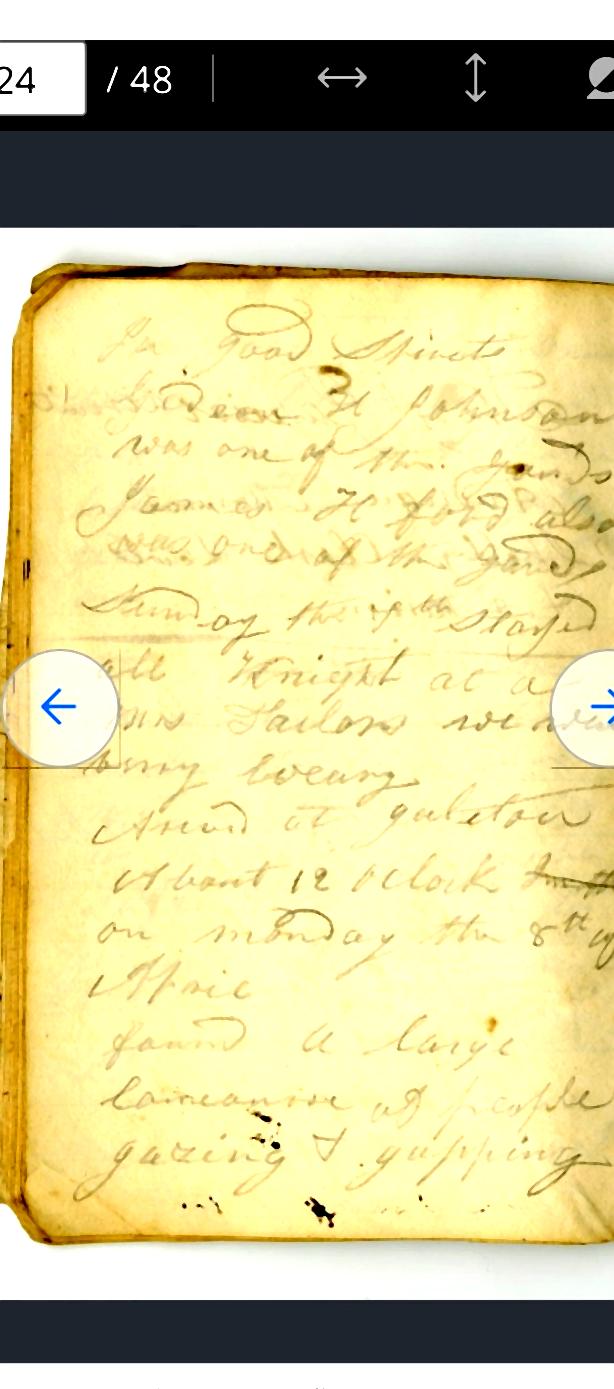 24 / 48
In good Spirits
Gideon H Johnson
was one of the gards
James H ford also
was one of the gards
Sunday the 7th stayed
all Knight at a
Mrs Tailors we
very weary
Arived at galeton
About 12 Oclock
on monday the 8th of
April
found a large
of people
gazing & gapping